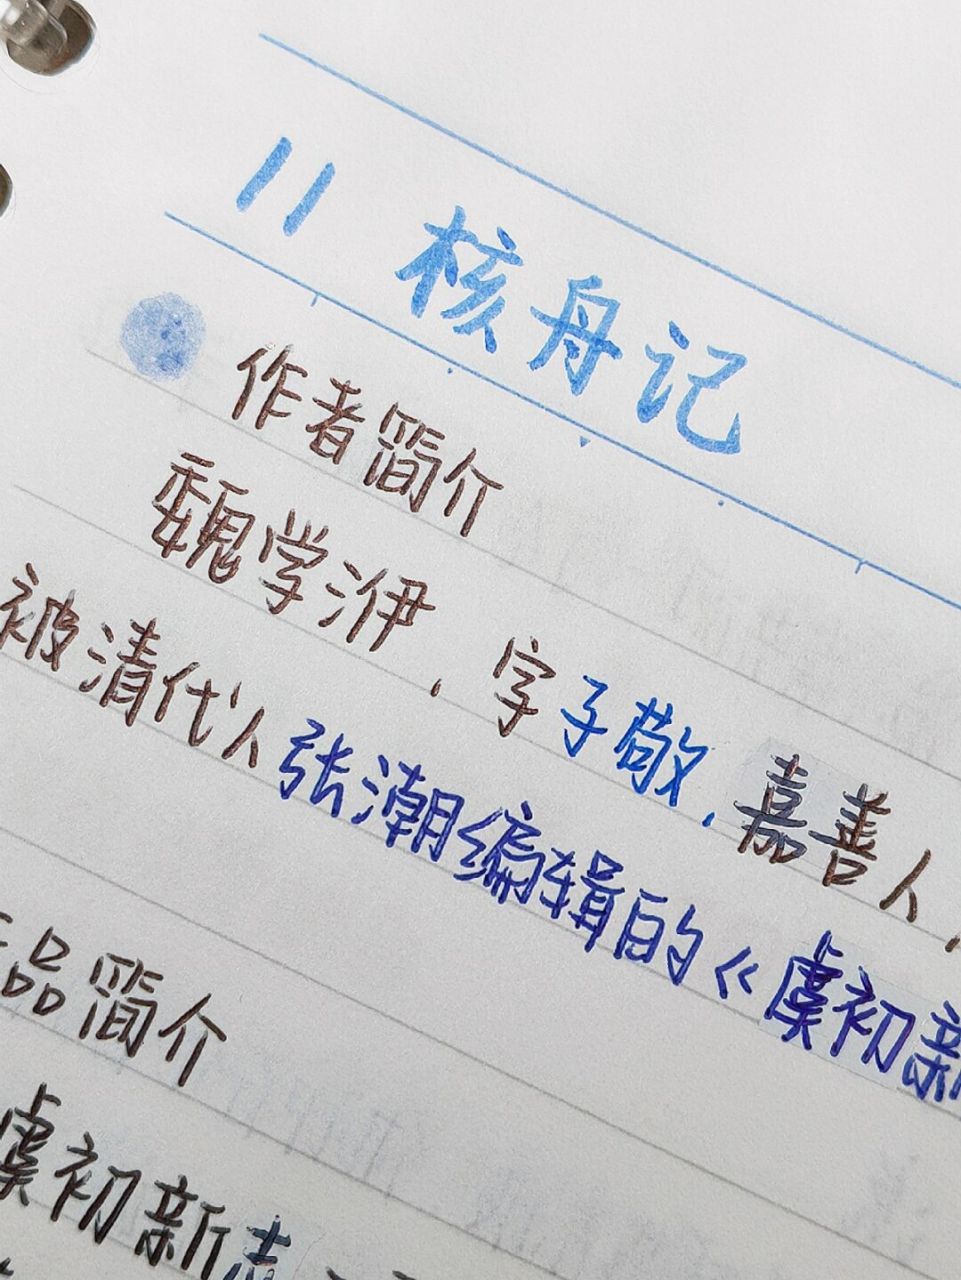 11 核舟记
作者简介
魏学洢,字子敬,嘉善人,
被清代人张潮编辑的《虞初新
品简介
虞初新志